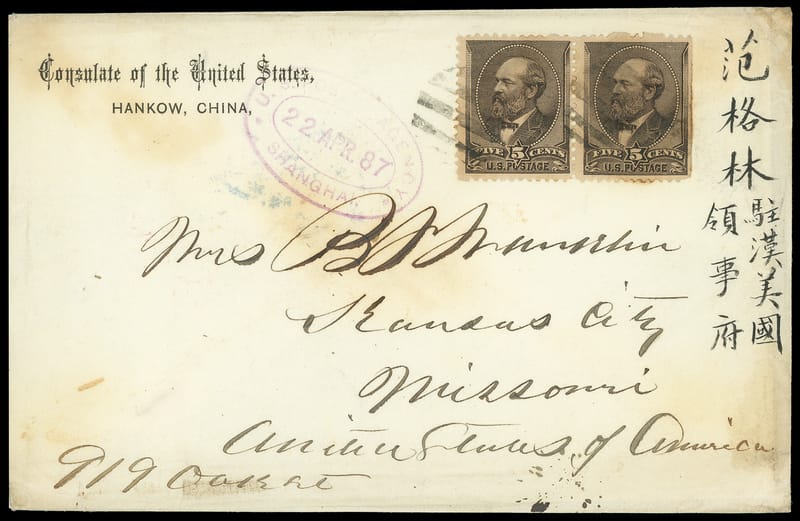 Consulate of the United States,
HANKOW, CHINA,
U.S. POSTAL AGENCY
22 APR. 87
SHANGHAI
FIVE 5 CENTS
U.S. POSTAGE
FIVE 5 CENTS
U.S. POSTAGE
范格林
駐漢美國
領事府
Mrs B F Franklin
Kansas City
Missouri
United States of America
919 Oak St